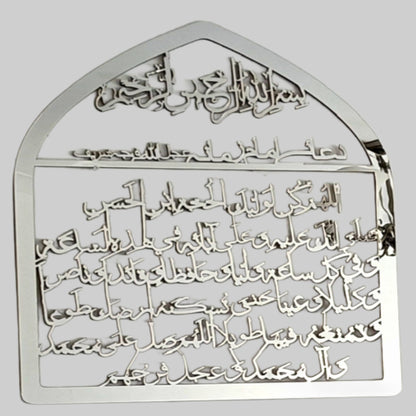 بسم الله الرحمن الرحيم
دعاء امام زمان عجل الله فرجه شريف
اللهم كن لوليك الحجة ابن الحسن
صلواتك عليه وعلى آبائه في هذه الساعة
وفي كل ساعة وليا وحافظا وقائدا وناصرا
ودليلا وعينا حتى تسكنه ارضك طوعا
وتمتعه فيها طويلا اللهم صل على محمد
وآل محمد وعجل فرجهم